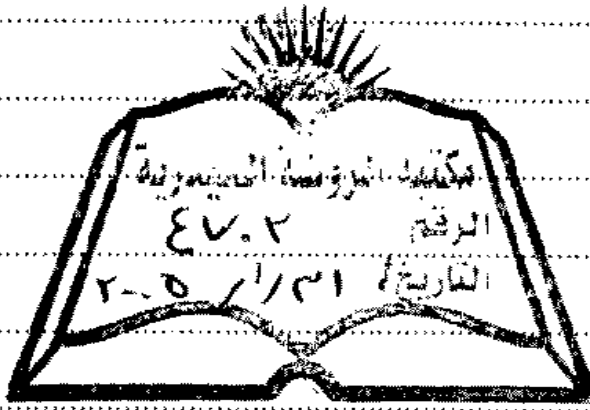 مكتبة الروضة الحيدرية
الرقم ٤٧٠٢
التاريخ ٣١/١/٢٠٠٥